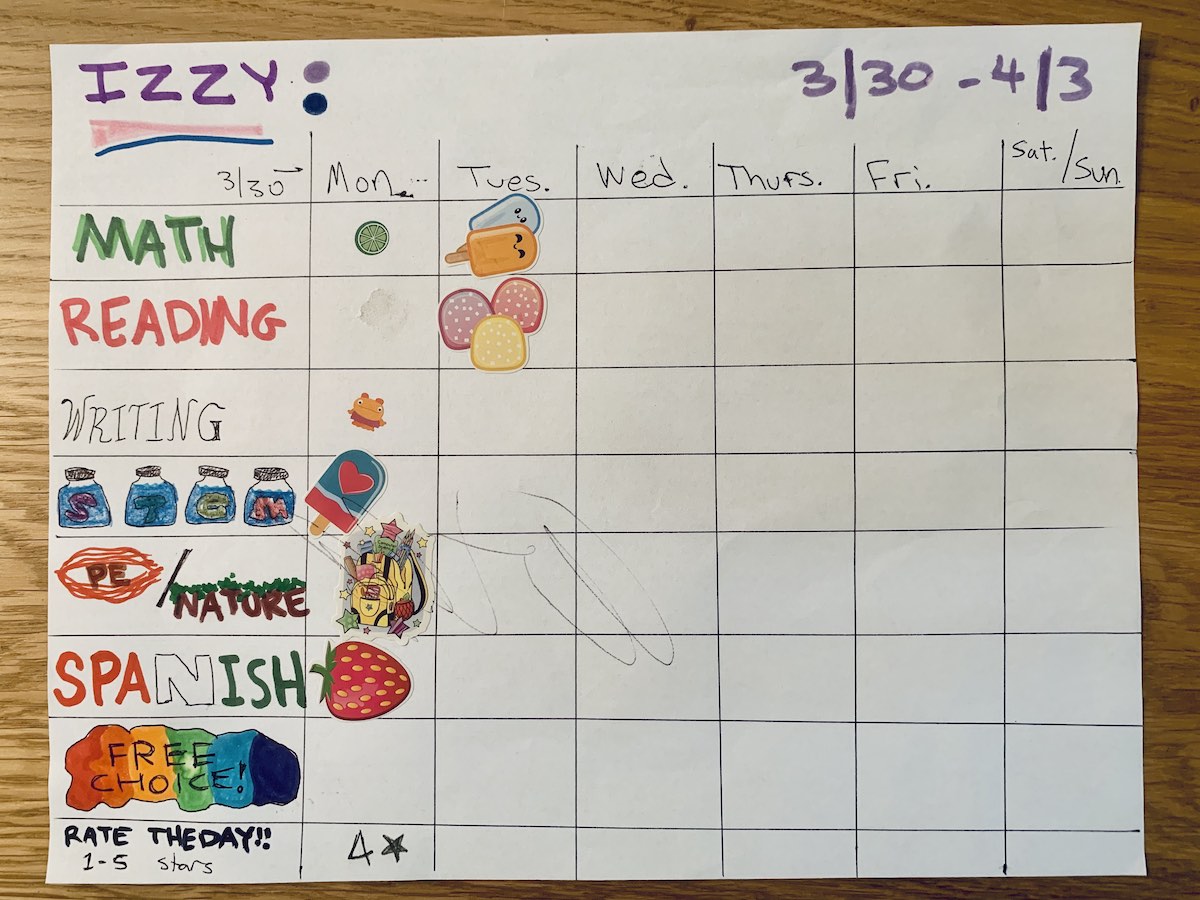 IZZY: 3/30 - 4/3
3/30 → Mon. Tues. Wed. Thurs. Fri. Sat./Sun.
MATH
READING
WRITING
STEM
PE/NATURE
SPANISH
FREE
CHOICE!
RATE THE DAY!! 4★
1-5 stars